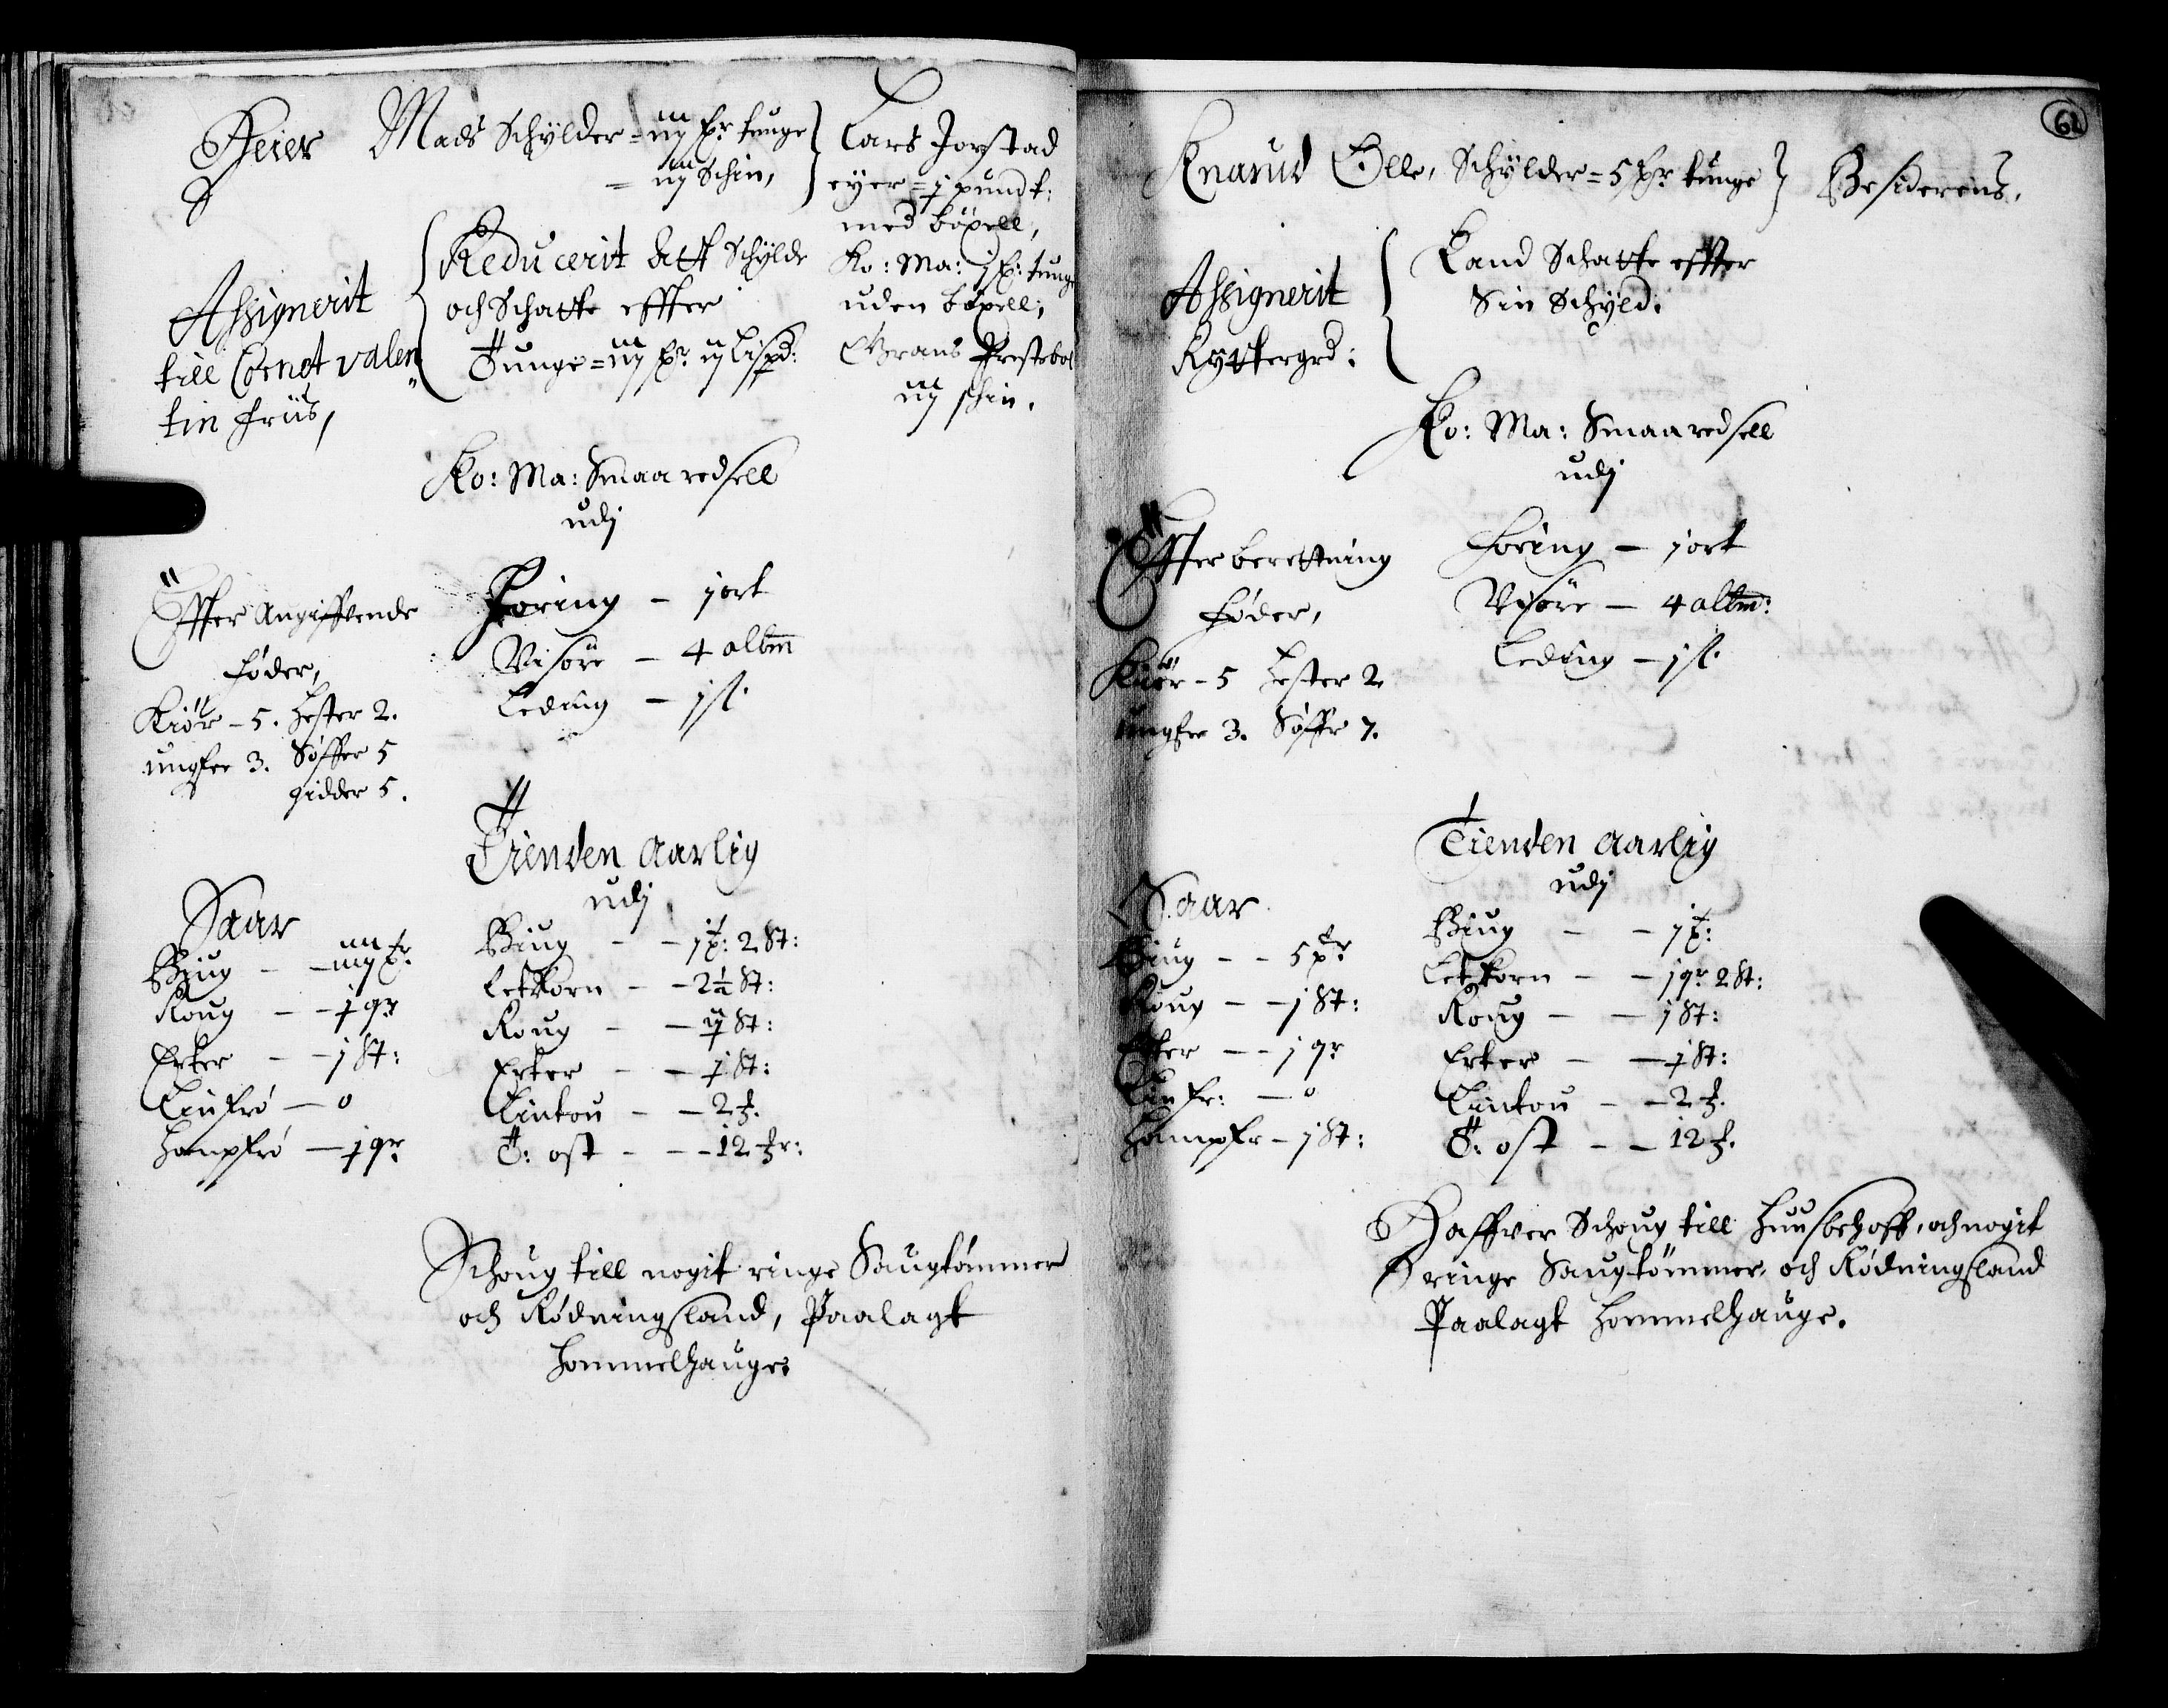 Heier Mads Schÿlder = iiij fr tunge
= iiij Schin,
Lars Jorstad
eÿer = j pund t:
med böxell,
Ko: Ma: j f: tung
uden böxell,
Grans Prestebol
iij schin.
Assignerit
till Cornet valen
tin friis,
Reducerit Att Schÿlde
och Schatte effter
Tunge = iij fr ij Lispd:
Ko: Ma: Smaa redsell
udj
Effter Angiffvende
føder,
Kiör - 5. Hester 2.
ungfee 3. Søffer 5
gidder 5.
Foring - j ort
Visöre - 4 albm
Leding - j s.
Tienden Aarlig
udj
Saar
Biug - - iiij f.
Roug - - j qr
Erter - - j St:
Linfrö - 0
Hampfrö - j qr
Biug - - j f: 2 St:
Letkorn - - 2½ St:
Roug - - ij St:
Erter - - j St:
Lintou - - 2 f.
T: ost - - 12 f:
Schoug till nogit ringe Saugtömmer
och Rødningsland, Paalagt
Hommelhauge.
62
Knarud Olle, Schÿlder = 5 fr tunge Besiderens,
Assignerit
Rÿttergrd:
Land Schatte effter
Sin Schÿld.
Ko: Ma: Smaaredsell
udj
Effter berettning
føder,
Kiör - 5 Hester 2.
ungfee 3. Søffr 7.
Foring - j ort
Visöre - 4 albm:
Leding - j s.
Tienden Aarlig
udj
Saar
Biug - - 5 fr
Roug - - j St:
Erter - - j qr
Linfr: - 0
Hampfr - j St:
Biug - - j f:
Letkorn - - j qr 2 St:
Roug - - j St:
Erter - - j St:
Lintou - - 2 f.
T: ost - - 12 f.
Haffver Schoug till Huusbehoff, och nogit
ringe Saugtömmer, och Rødningsland
Paalagt Hommelhauge.